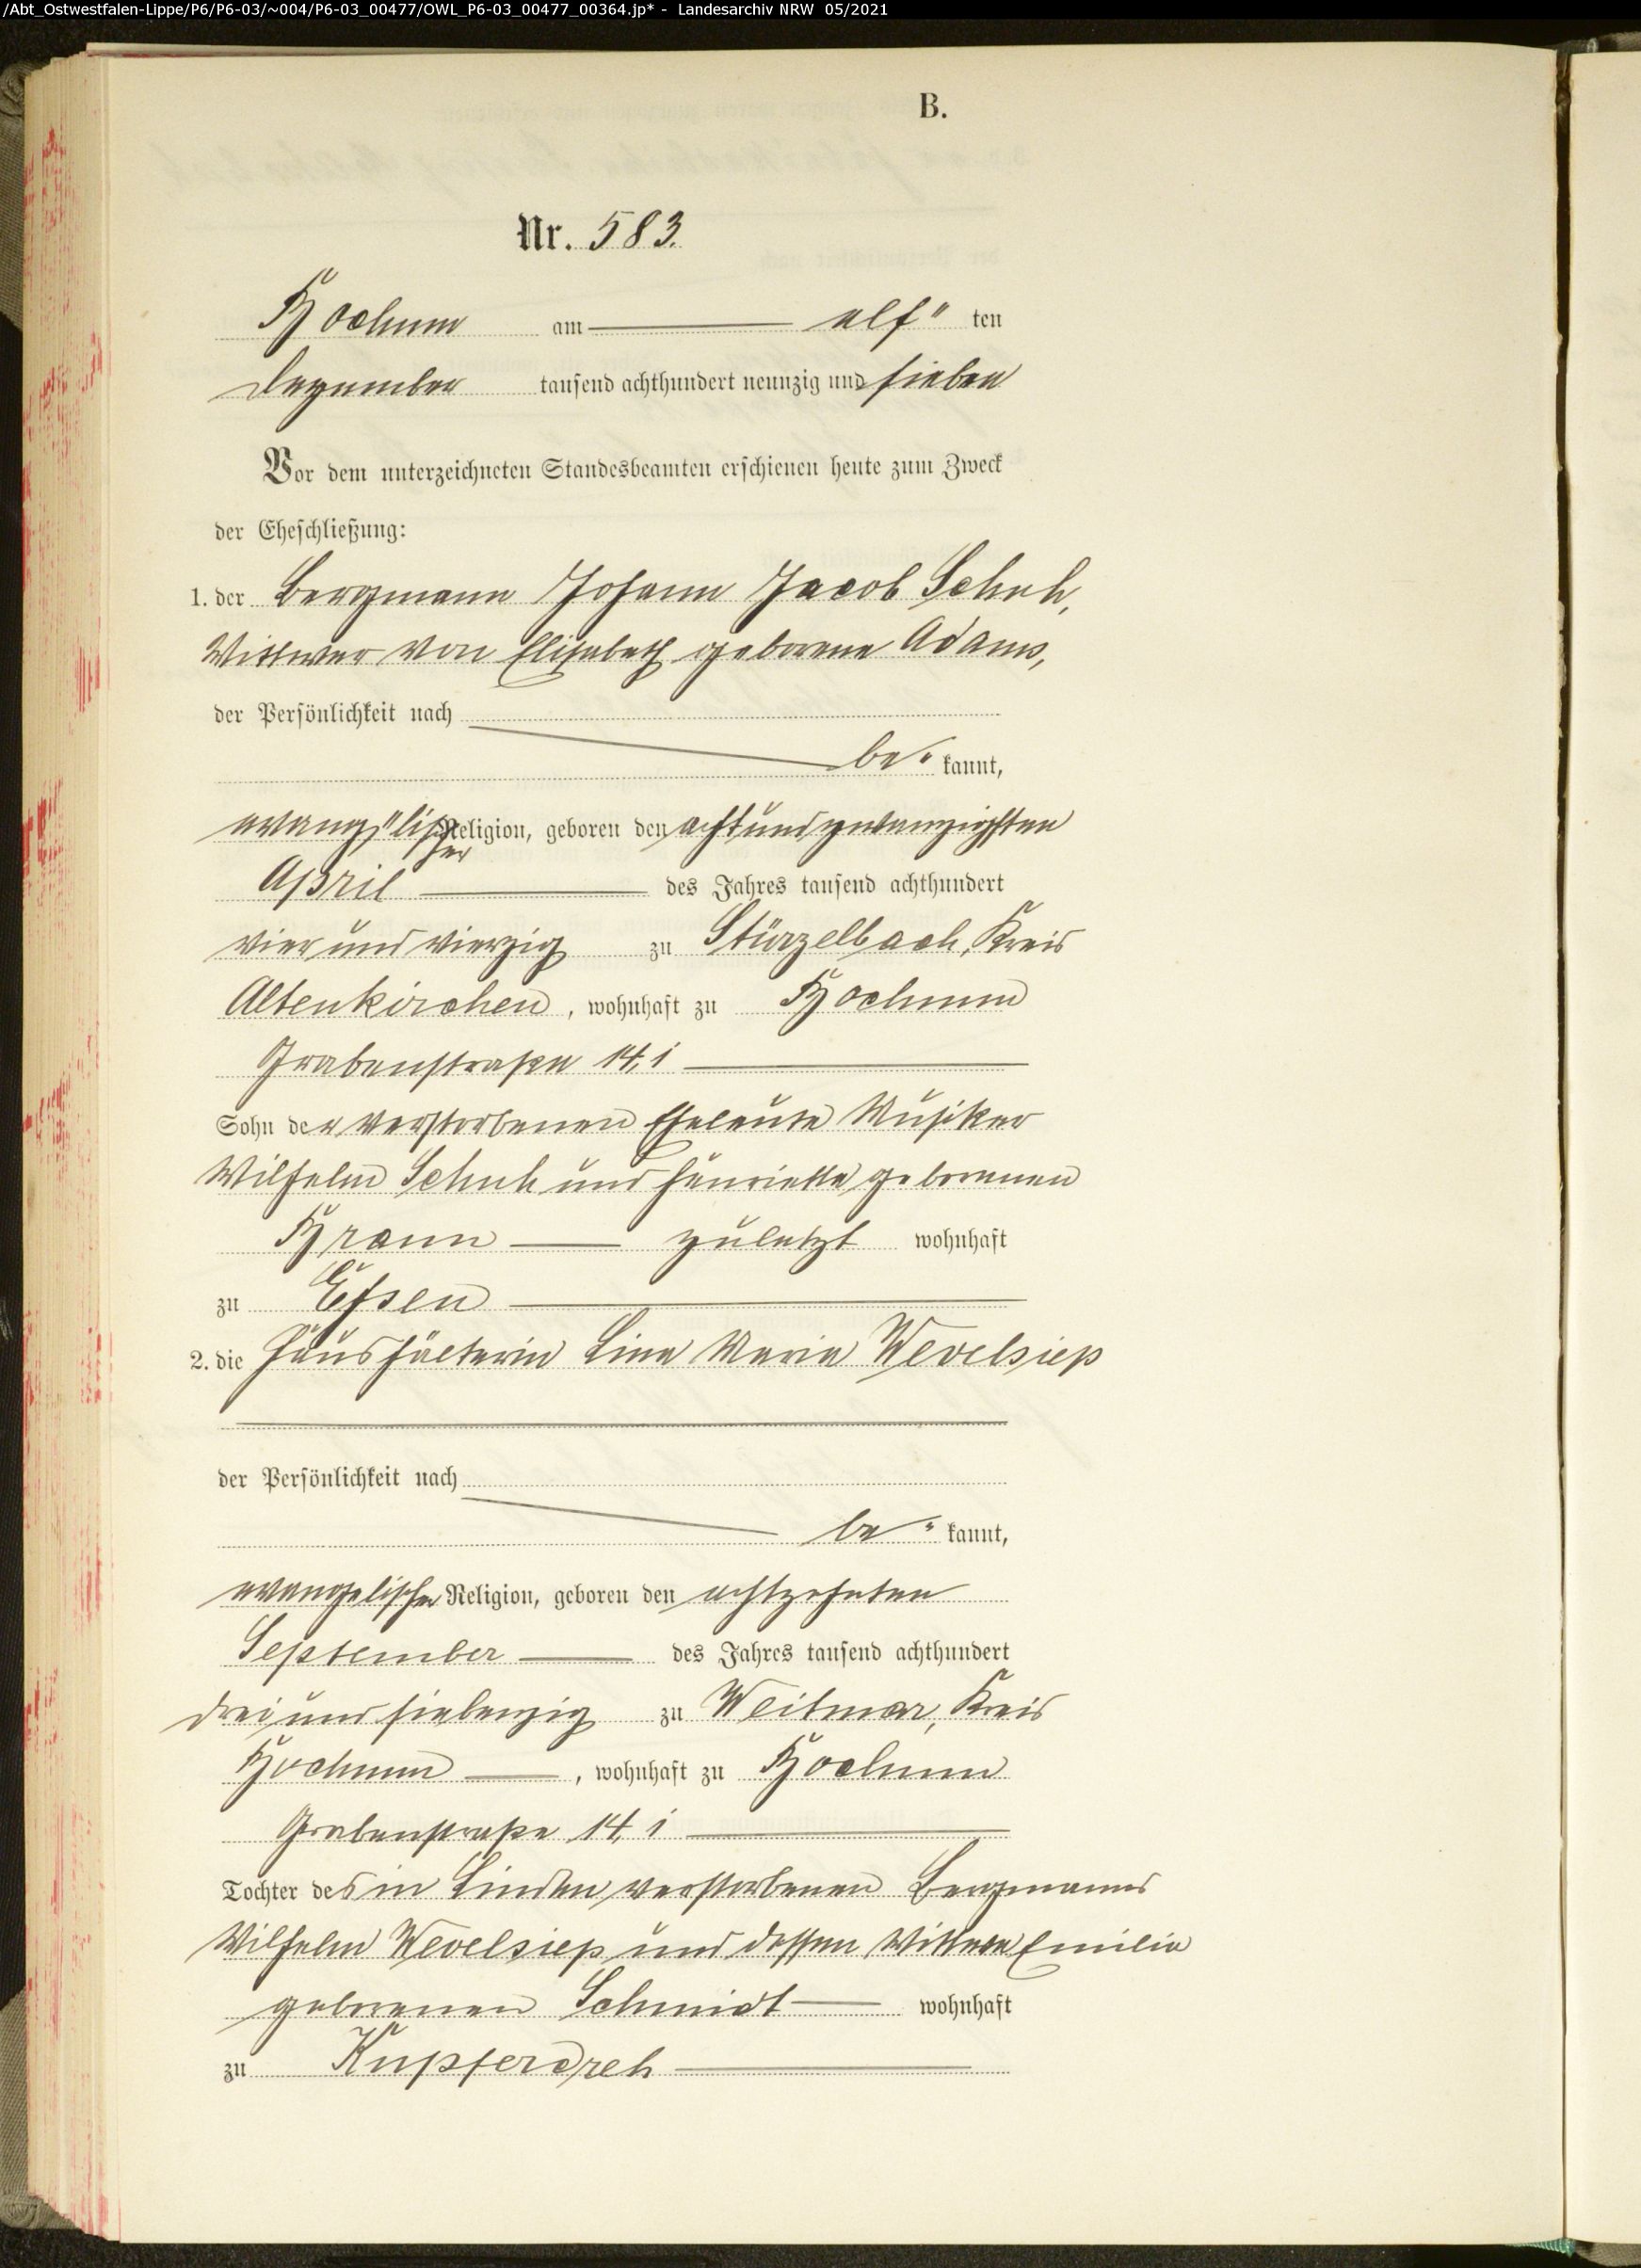 /Abt_Ostwestfalen-Lippe/P6/P6-03/~004/P6-03_00477/OWL_P6-03_00477_00364.jp* - Landesarchiv NRW 05/2021
B.
Nr. 583.
Bochum am elf" ten
Dezember tausend achthundert neunzig und sieben
Vor dem unterzeichneten Standesbeamten erschienen heute zum Zweck
der Eheschließung:
1. der Bergmann Johann Jacob Schuh,
Wittwer von Elisabeth geborene Adams,
der Persönlichkeit nach
be" kannt,
evangelischer Religion, geboren den achtundzwanzigsten
April des Jahres tausend achthundert
vier und vierzig zu Stürzelbach, Kreis
Altenkirchen, wohnhaft zu Bochum
Grabenstraße 14, i
Sohn der verstorbenen Eheleute Musiker
Wilhelm Schuh und Henriette geborenen
zuletzt wohnhaft
zu Essen
2. die Haushälterin Lina Maria Wevelsiep
der Persönlichkeit nach
be" kannt,
evangelischer Religion, geboren den achtzehnten
September des Jahres tausend achthundert
drei und siebenzig zu Weitmar, Kreis
Bochum, wohnhaft zu Bochum
Grabenstraße 14, i
Tochter des in Linden verstorbenen Bergmanns
Wilhelm Wevelsiep und dessen Wittwe Emilie
geborenen Schmidt wohnhaft
zu Kupferdreh